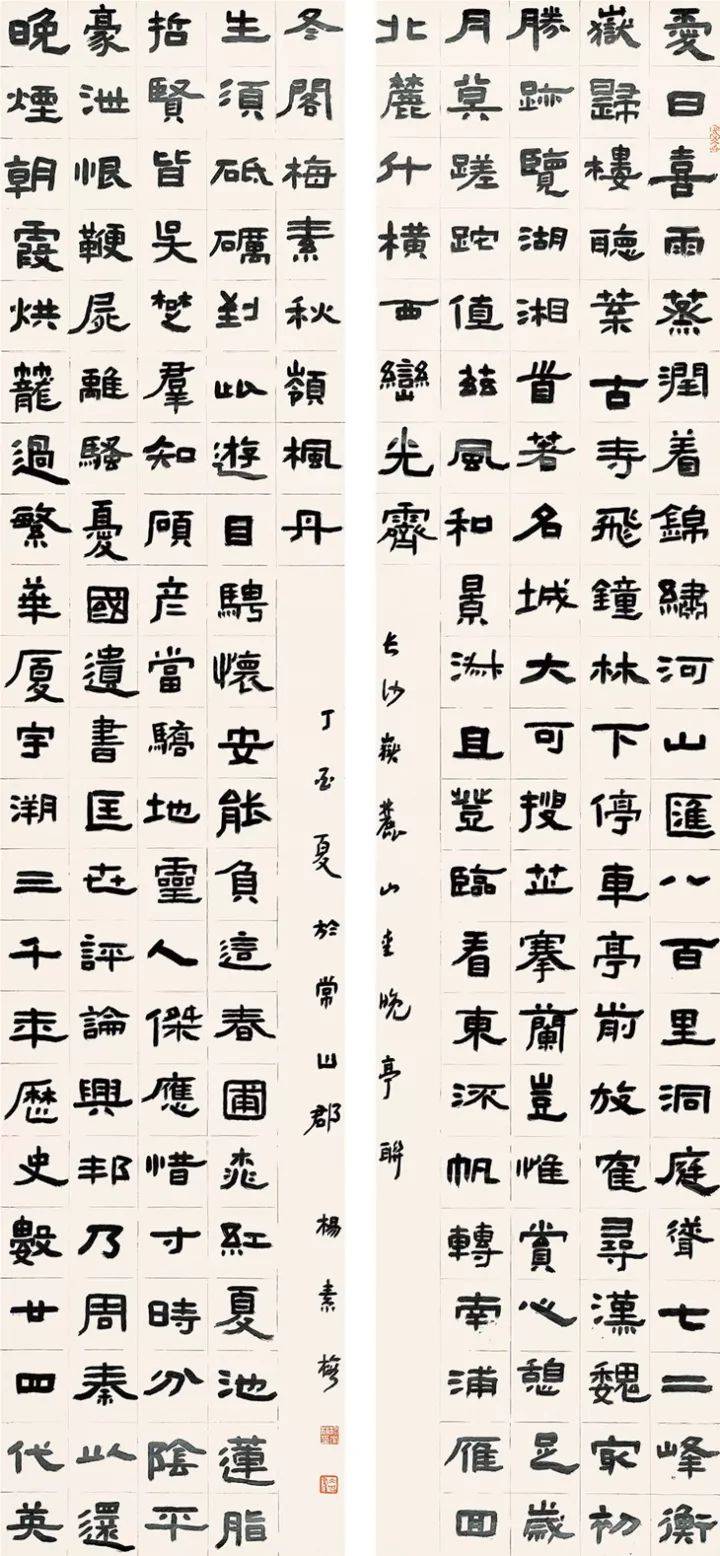 愛日喜雨蒸潤着錦繡河山匯八百里洞庭聳七二峰衡
嶽歸樓聽葉古寺飛鐘林下停車亭前放隺尋漢魏最初
勝跡覽湖湘首著名城大可搜芷搴蘭豈惟賞心憩足歲
月莫蹉跎值茲風和景淑且登臨看東流帆轉南浦雁回
北麓斗橫西巒光霽
长沙嶽麓山愛晚亭聯
晚煙朝霞烘籠過繁華廈宇溯三千年歷史數廿四代英
豪泄恨鞭屍離騷憂國遺書匡世評論興邦乃周秦以還
哲賢皆吳楚羣知碩彦當驕地靈人傑應惜寸時分陰平
生須砥礪對此遊目騁懷安能負這春圃桃紅夏池蓮脂
冬閣梅素秋嶺楓丹
丁酉夏於常山郡 楊素